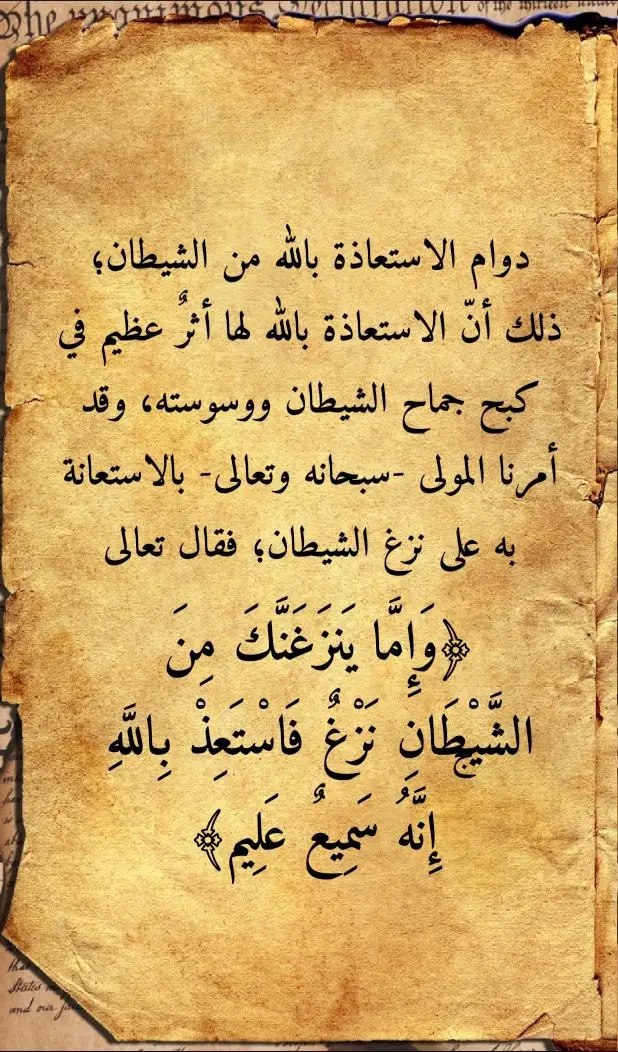 The unanimous Declaration of the thirteen united
دوام الاستعاذة بالله من الشيطان؛
ذلك أنّ الاستعاذة بالله لها أثرٌ عظيم في
كبح جماح الشيطان ووسوسته، وقد
أمرنا المولى -سبحانه وتعالى- بالاستعانة
به على نزغ الشيطان؛ فقال تعالى
﴿وَإِمَّا يَنزَغَنَّكَ مِنَ
الشَّيْطَانِ نَزْغٌ فَاسْتَعِذْ بِاللَّهِ ۚ
إِنَّهُ سَمِيعٌ عَلِيم﴾
States
and our